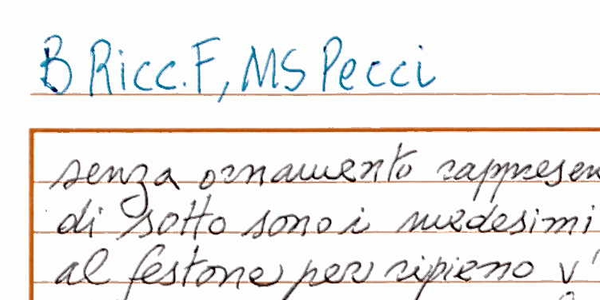 B Ricc. F, MS Pecci
senza ornamento rappresen
di sotto sono i medesimi
al festone per ripieno v'